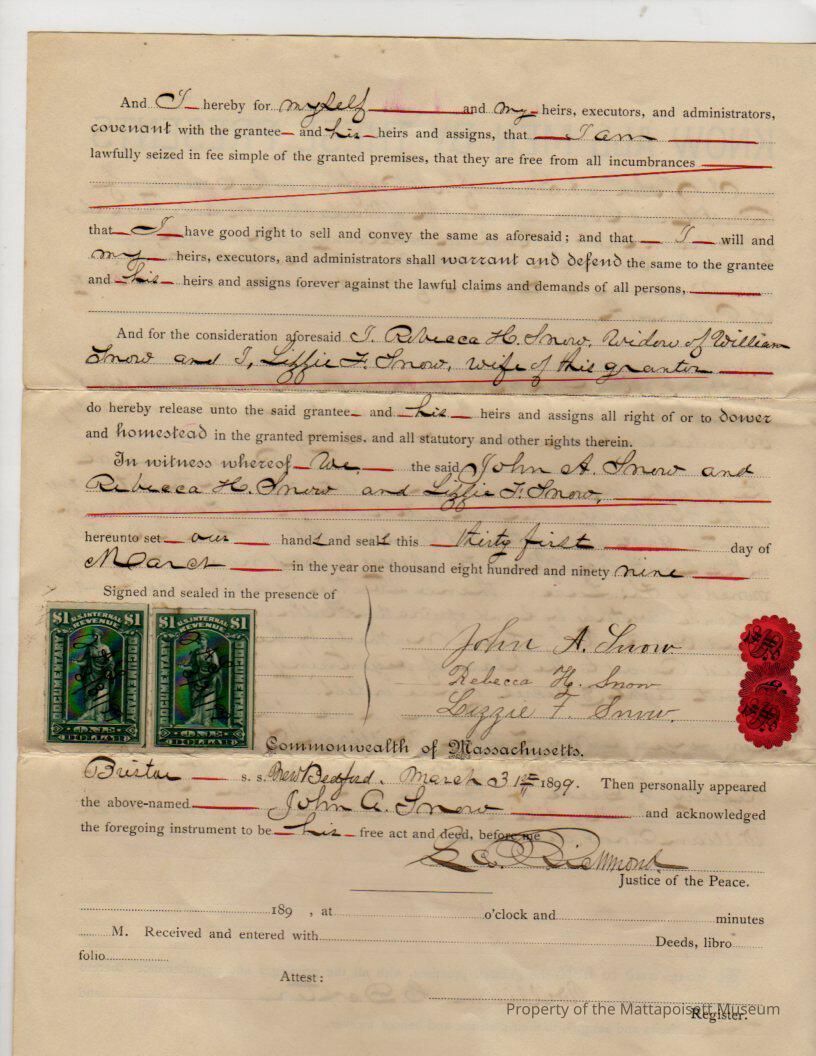 And I hereby for myself and my heirs, executors, and administrators,
covenant with the grantee and his heirs and assigns, that I am
lawfully seized in fee simple of the granted premises, that they are free from all incumbrances
that I have good right to sell and convey the same as aforesaid; and that I will and
my heirs, executors, and administrators shall warrant and defend the same to the grantee
and his heirs and assigns forever against the lawful claims and demands of all persons,
And for the consideration aforesaid I, Rebecca H. Snow, Widow of William
Snow and I, Lizzie F. Snow, wife of this grantor
do hereby release unto the said grantee and his heirs and assigns all right of or to dower
and homestead in the granted premises, and all statutory and other rights therein.
In witness whereof We, the said John A. Snow and
Rebecca H. Snow and Lizzie F. Snow,
hereunto set our hands and seals this thirty first day of
March in the year one thousand eight hundred and ninety nine
Signed and sealed in the presence of
$1 U.S. INTERNAL REVENUE $1
DOCUMENTARY DOCUMENTARY
ONE DOLLAR
$1 U.S. INTERNAL REVENUE $1
DOCUMENTARY DOCUMENTARY
ONE DOLLAR
John A. Snow
Rebecca H. Snow
Lizzie F. Snow.
Commonwealth of Massachusetts.
Bristol s. s. New Bedford, March 31st 1899. Then personally appeared
the above-named John A. Snow and acknowledged
the foregoing instrument to be his free act and deed, before me
Richmond
Justice of the Peace.
189 , at o'clock and minutes
M. Received and entered with Deeds, libro
folio
Attest:
Register.
Property of the Mattapoisett Museum